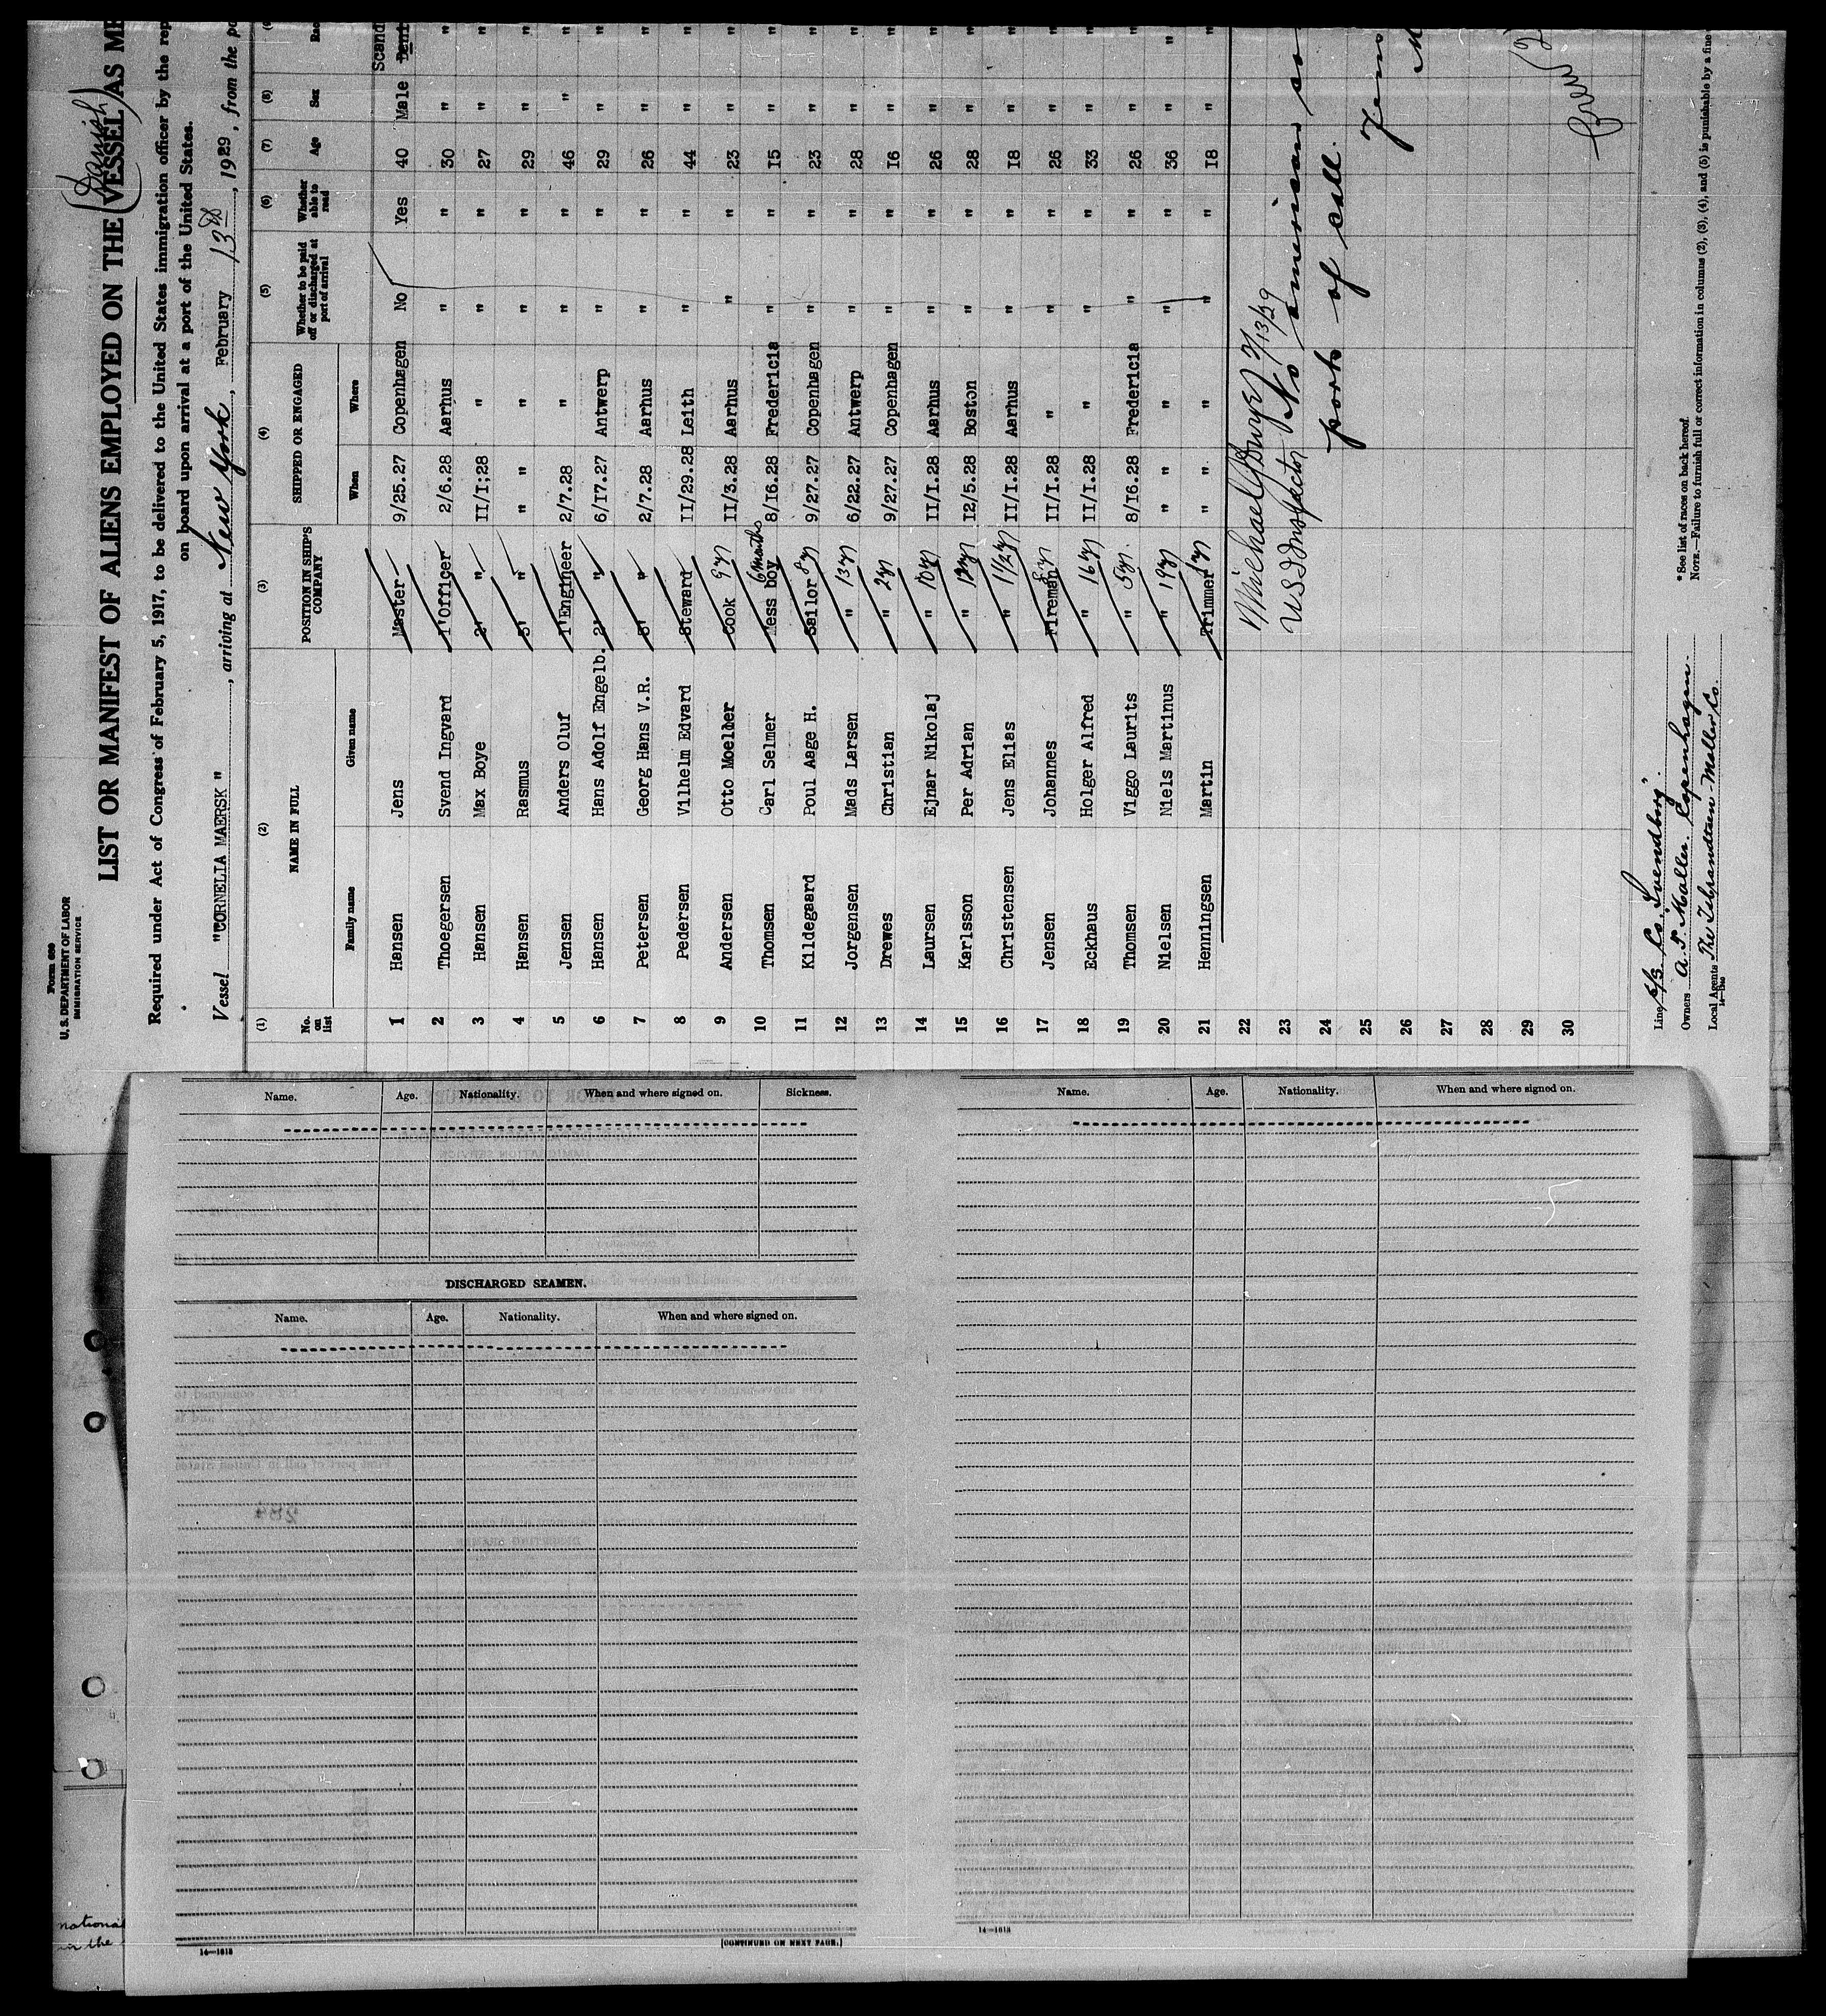 Form 686
U. S. DEPARTMENT OF LABOR
IMMIGRATION SERVICE
(Danish)
LIST OR MANIFEST OF ALIENS EMPLOYED ON THE VESSEL AS ME
Required under Act of Congress of February 5, 1917, to be delivered to the United States immigration officer by the rep
on board upon arrival at a port of the United States.
Vessel "CORNELIA MAERSK", arriving at New York, February 13th, 1929, from the po
(1) (2) (3) (4) (5) (6) (7) (8)
No. on list NAME IN FULL POSITION IN SHIP'S COMPANY SHIPPED OR ENGAGED Whether to be paid off or discharged at port of arrival Whether able to read Age Sex Rac
Family name Given name When Where
1 Hansen Jens Master 9/25.27 Copenhagen No Yes 40 Male Scand
2 Thoegersen Svend Ingvard 1'Officer 2/6.28 Aarhus " " 30 " "
3 Hansen Max Boye 2' " II/I;28 " " " 27 " "
4 Hansen Rasmus 3' " " " " " 29 " "
5 Jensen Anders Oluf I'Engineer 2/7.28 " " " 46 " "
6 Hansen Hans Adolf Engelb. 2' " 6/I7.27 Antwerp " " 29 " "
7 Petersen Georg Hans V.R. 3' " 2/7.28 Aarhus " " 26 " "
8 Pedersen Vilhelm Edvard Steward II/29.28 Leith " " 44 " "
9 Andersen Otto Moeller Cook 9 yr II/3.28 Aarhus " " 23 " "
10 Thomsen Carl Selmer Mess boy 6 months 8/I6.28 Fredericia " " I5 " "
11 Kildegaard Poul Aage H. Sailor 8 yr 9/27.27 Copenhagen " " 23 " "
12 Jorgensen Mads Larsen " 13 yr 6/22.27 Antwerp " " 28 " "
13 Drewes Christian " 2 yr 9/27.27 Copenhagen " " I6 " "
14 Laursen Ejnar Nikolaj " 10 yr II/I.28 Aarhus " " 26 " "
15 Karlsson Per Adrian " 12 yr I2/5.28 Boston " " 28 " "
16 Christensen Jens Elias " 1 1/2 yr II/I.28 Aarhus " " I8 " "
17 Jensen Johannes Fireman 8 yr II/I.28 " " " 26 " "
18 Eckhaus Holger Alfred " 16 yr II/I.28 " " " 33 " "
19 Thomsen Viggo Laurits " 5 yr. 8/I6.28 Fredericia " " 26 " "
20 Nielsen Niels Martinus " 19 yr " " " " 36 " "
21 Henningsen Martin Trimmer 1 yr " " " " I8 " "
22
23
24
25
26
27
28
29
30
2/13/29
U S Inspector
No american
port of call.
Crew
Line S/S. Co. "Svendborg".
Owners A. P. Moller. Copenhagen.
Local Agents The Isbrandtsen-Moller Co.
* See list of races on back hereof.
NOTE.—Failure to furnish full or correct information in columns (2), (3), (4), and (5) is punishable by a fine
Name. Age. Nationality. When and where signed on. Sickness.
DISCHARGED SEAMEN.
Name. Age. Nationality. When and where signed on.
14—1613
[CONTINUED ON NEXT PAGE.]
Name. Age. Nationality. When and where signed on.
14—1613
national
in the